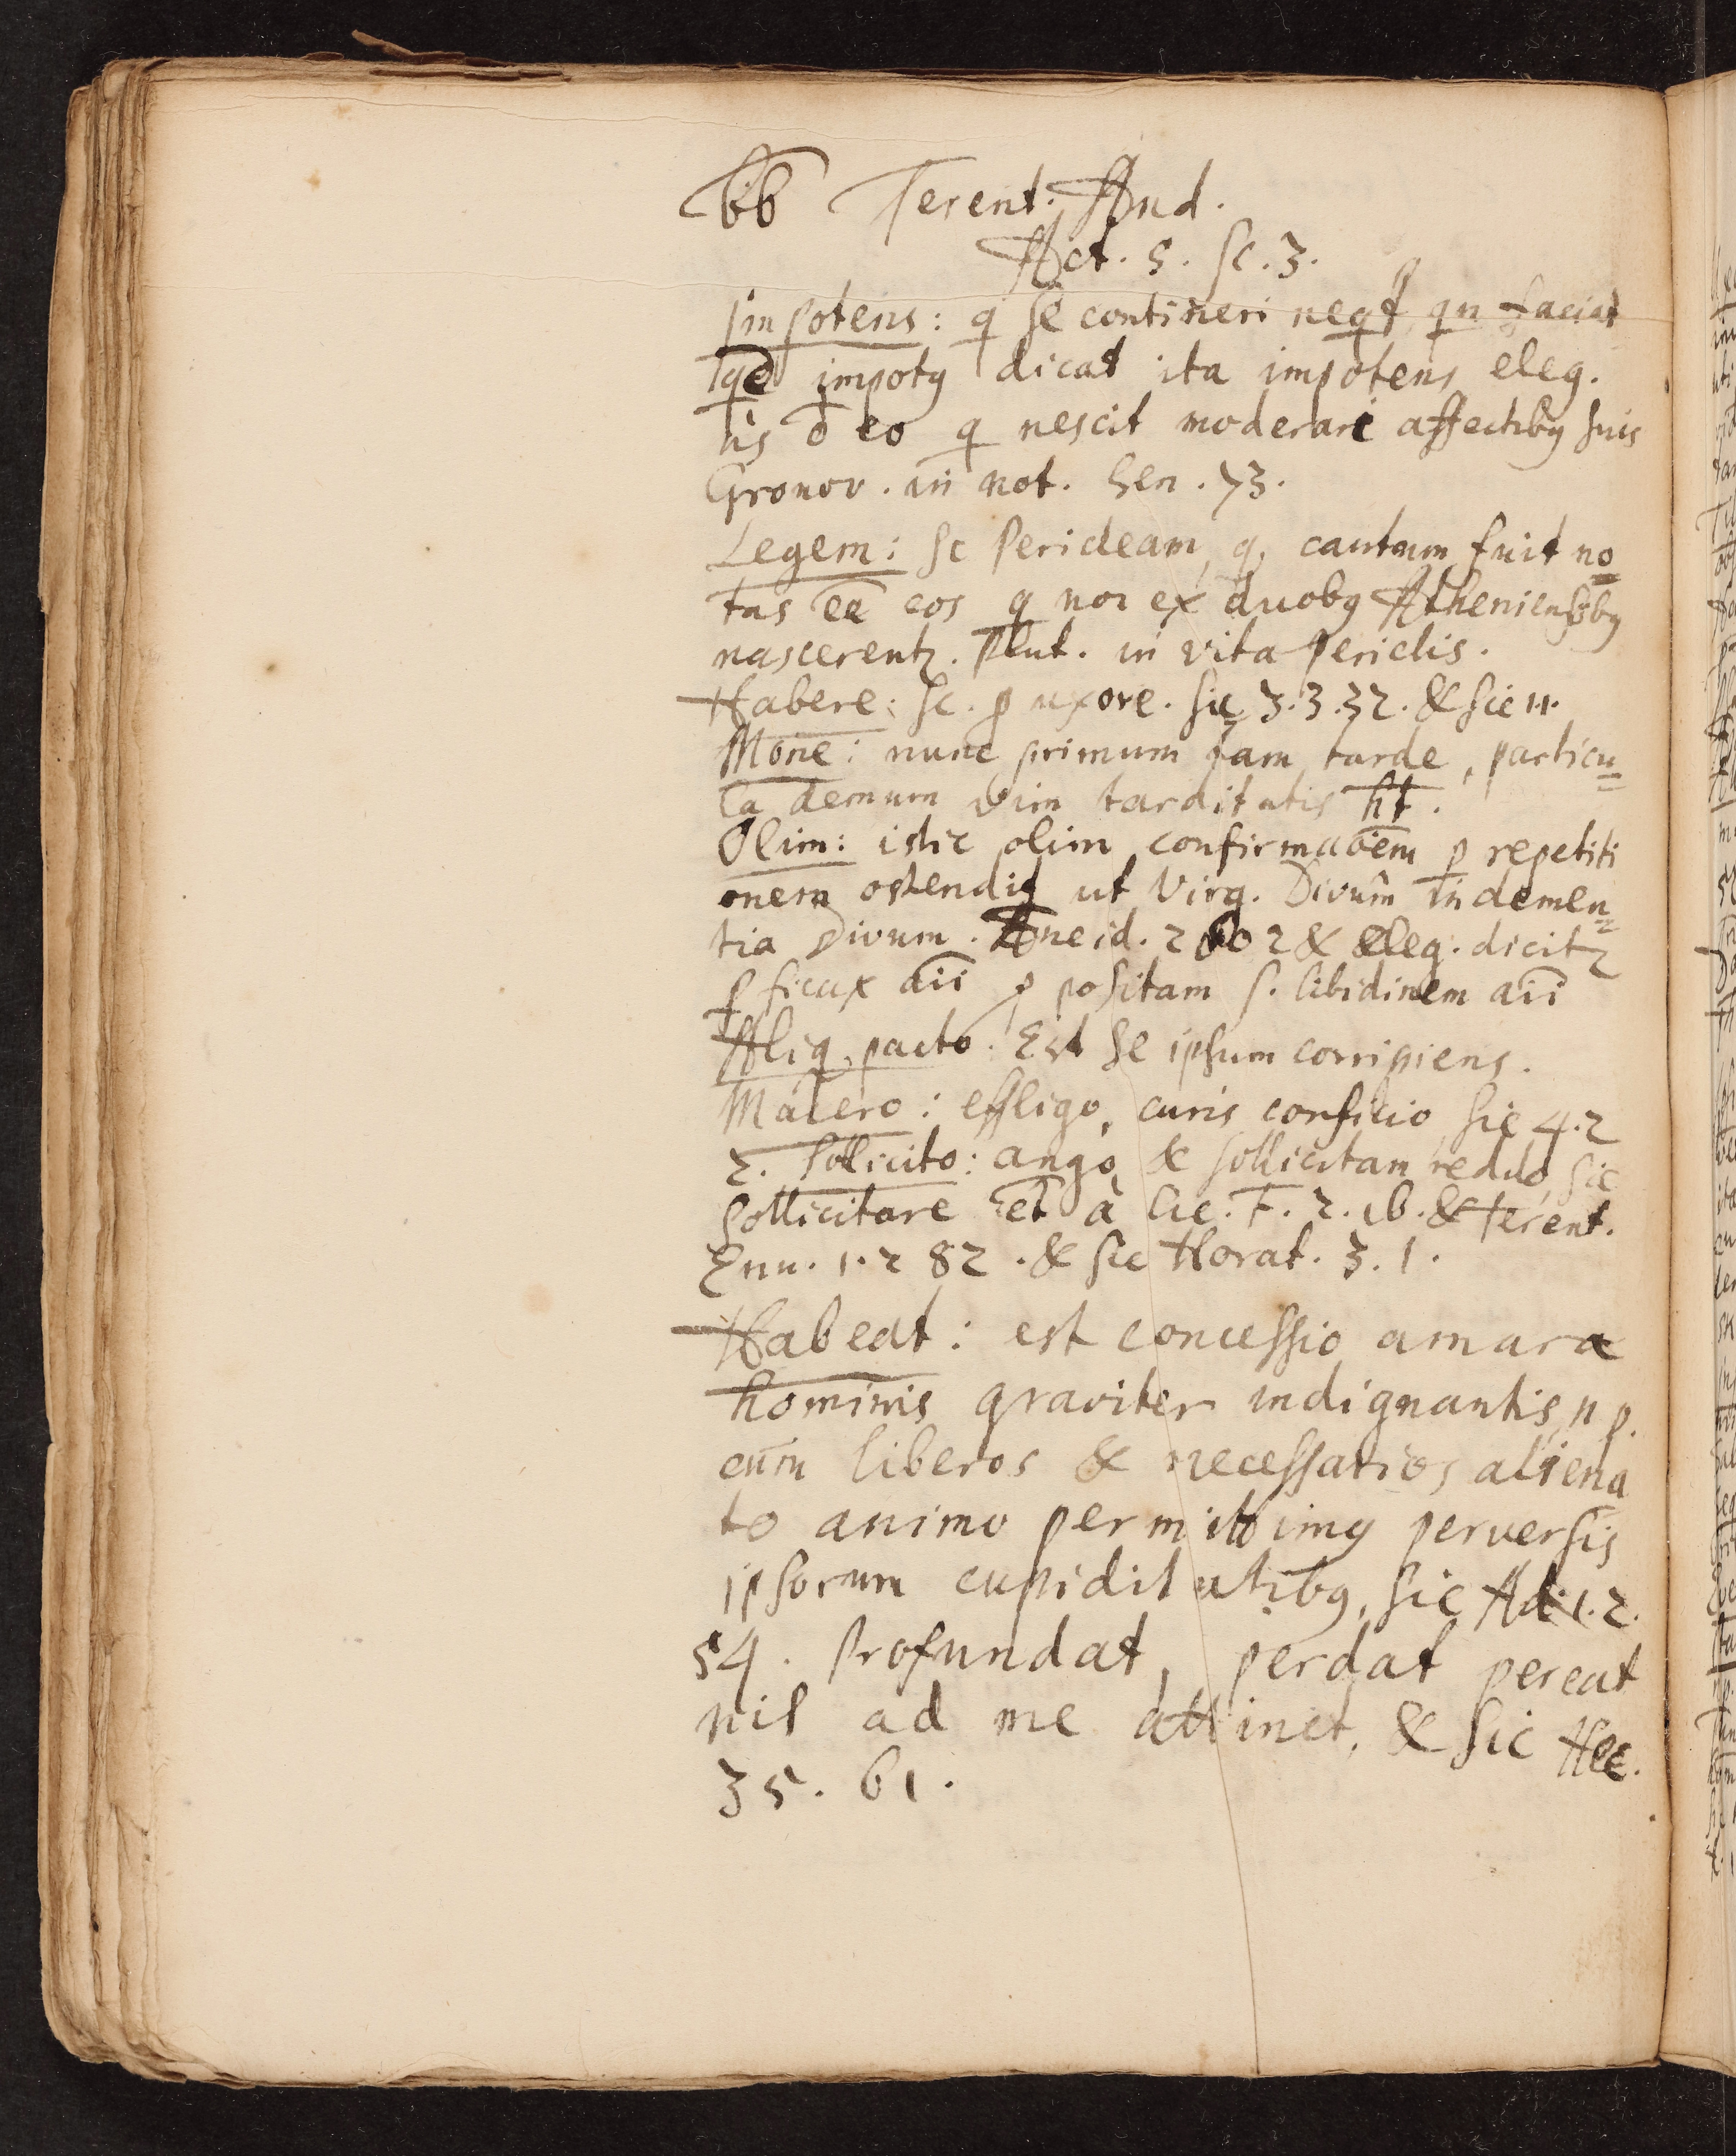 66 Terent. And.
Act. 5. Sc. 3.
Impotens: q se contineri neqt, qn faciat
impotq dicat ita impotens eleg.
eo q nescit moderari affectibq suis
Gronov. in not. Sen. 73.
Legem: sc Pericleam, q, cautum fuit no
tas ēē eos q non ex duobq Atheniensibq
nascerentr. Plut. in vita Periclis.
Habere: sc. p uxore. sic 3.3.32. & sic 11.
Mone: nunc primum jam tarde, particu=
la demum vim tarditatis ht.
Olim: istic olim confirmaōēm p repetiti
onem ostendit ut Virg. Divûm in clemen=
tia Divum. Æneid. 2 602 & eleg. dicitr
pficax aīi p positam s. libidinem aīi
Aliq, pacto. Est se ipsum corripiens.
Macero: effligo, curis conficio sic 4.2
2. Sollicito: ango, & sollicitam reddo, sic
Sollicitare et à Cic. F. 2. 16. & terent.
Enu. 1. 2 82. & sic Horat. 3. 1.
Habeat: est concessio amara
hominis graviter indignantis, n p.
cum liberos & necessarios aliena
to animo permittimq perversis
ipsorum cupiditatibq, sic Ad. 1. 2.
54. Profundat, perdat pereat
nil ad me attinet, & sic Hec.
3 5. 61.